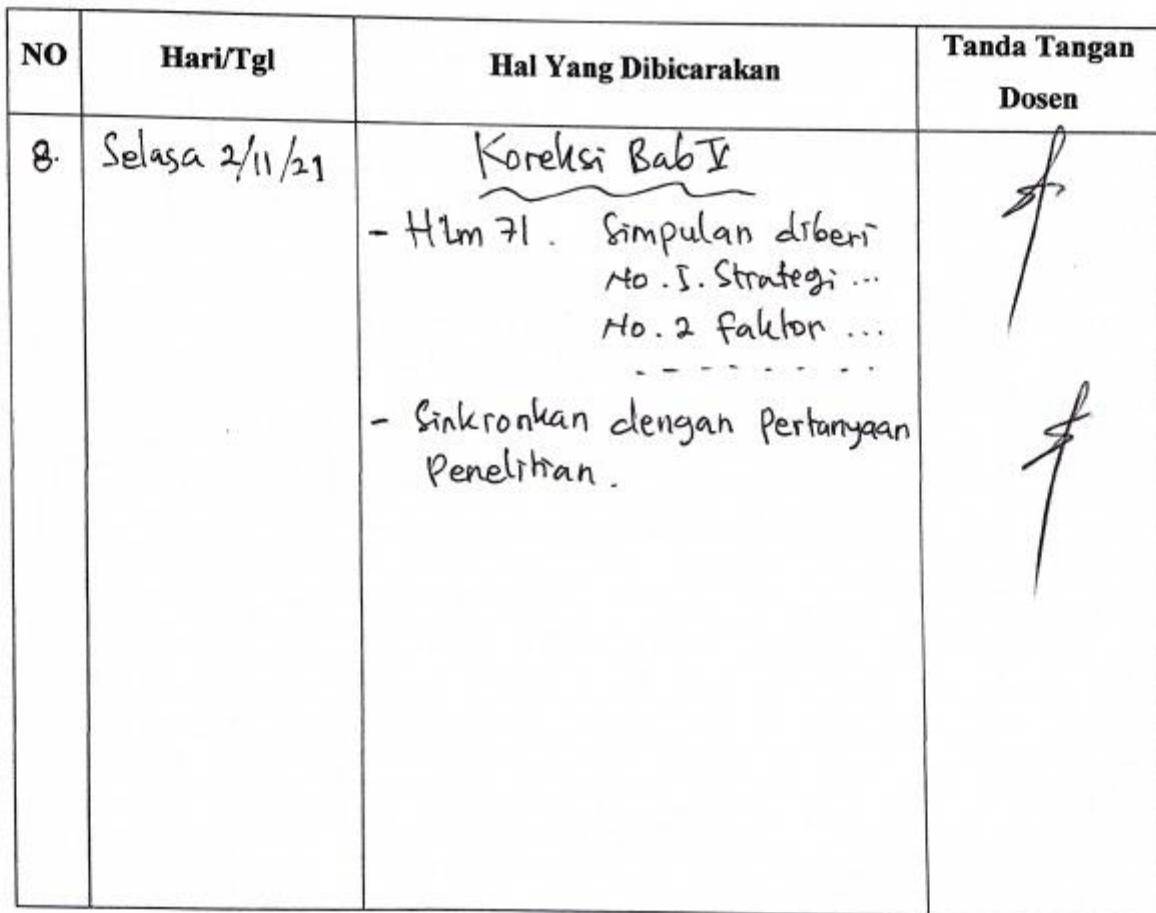 NO
Hari/Tgl
Hal Yang Dibicarakan
Tanda Tangan
Dosen
8.
Selasa 2/11/21
Koreksi Bab V
- Hlm 71. Simpulan diberi
No. 1. Strategi ...
No. 2 Faktor ...
- - - - - - - -
- Sinkronkan dengan Pertanyaan
Penelitian.